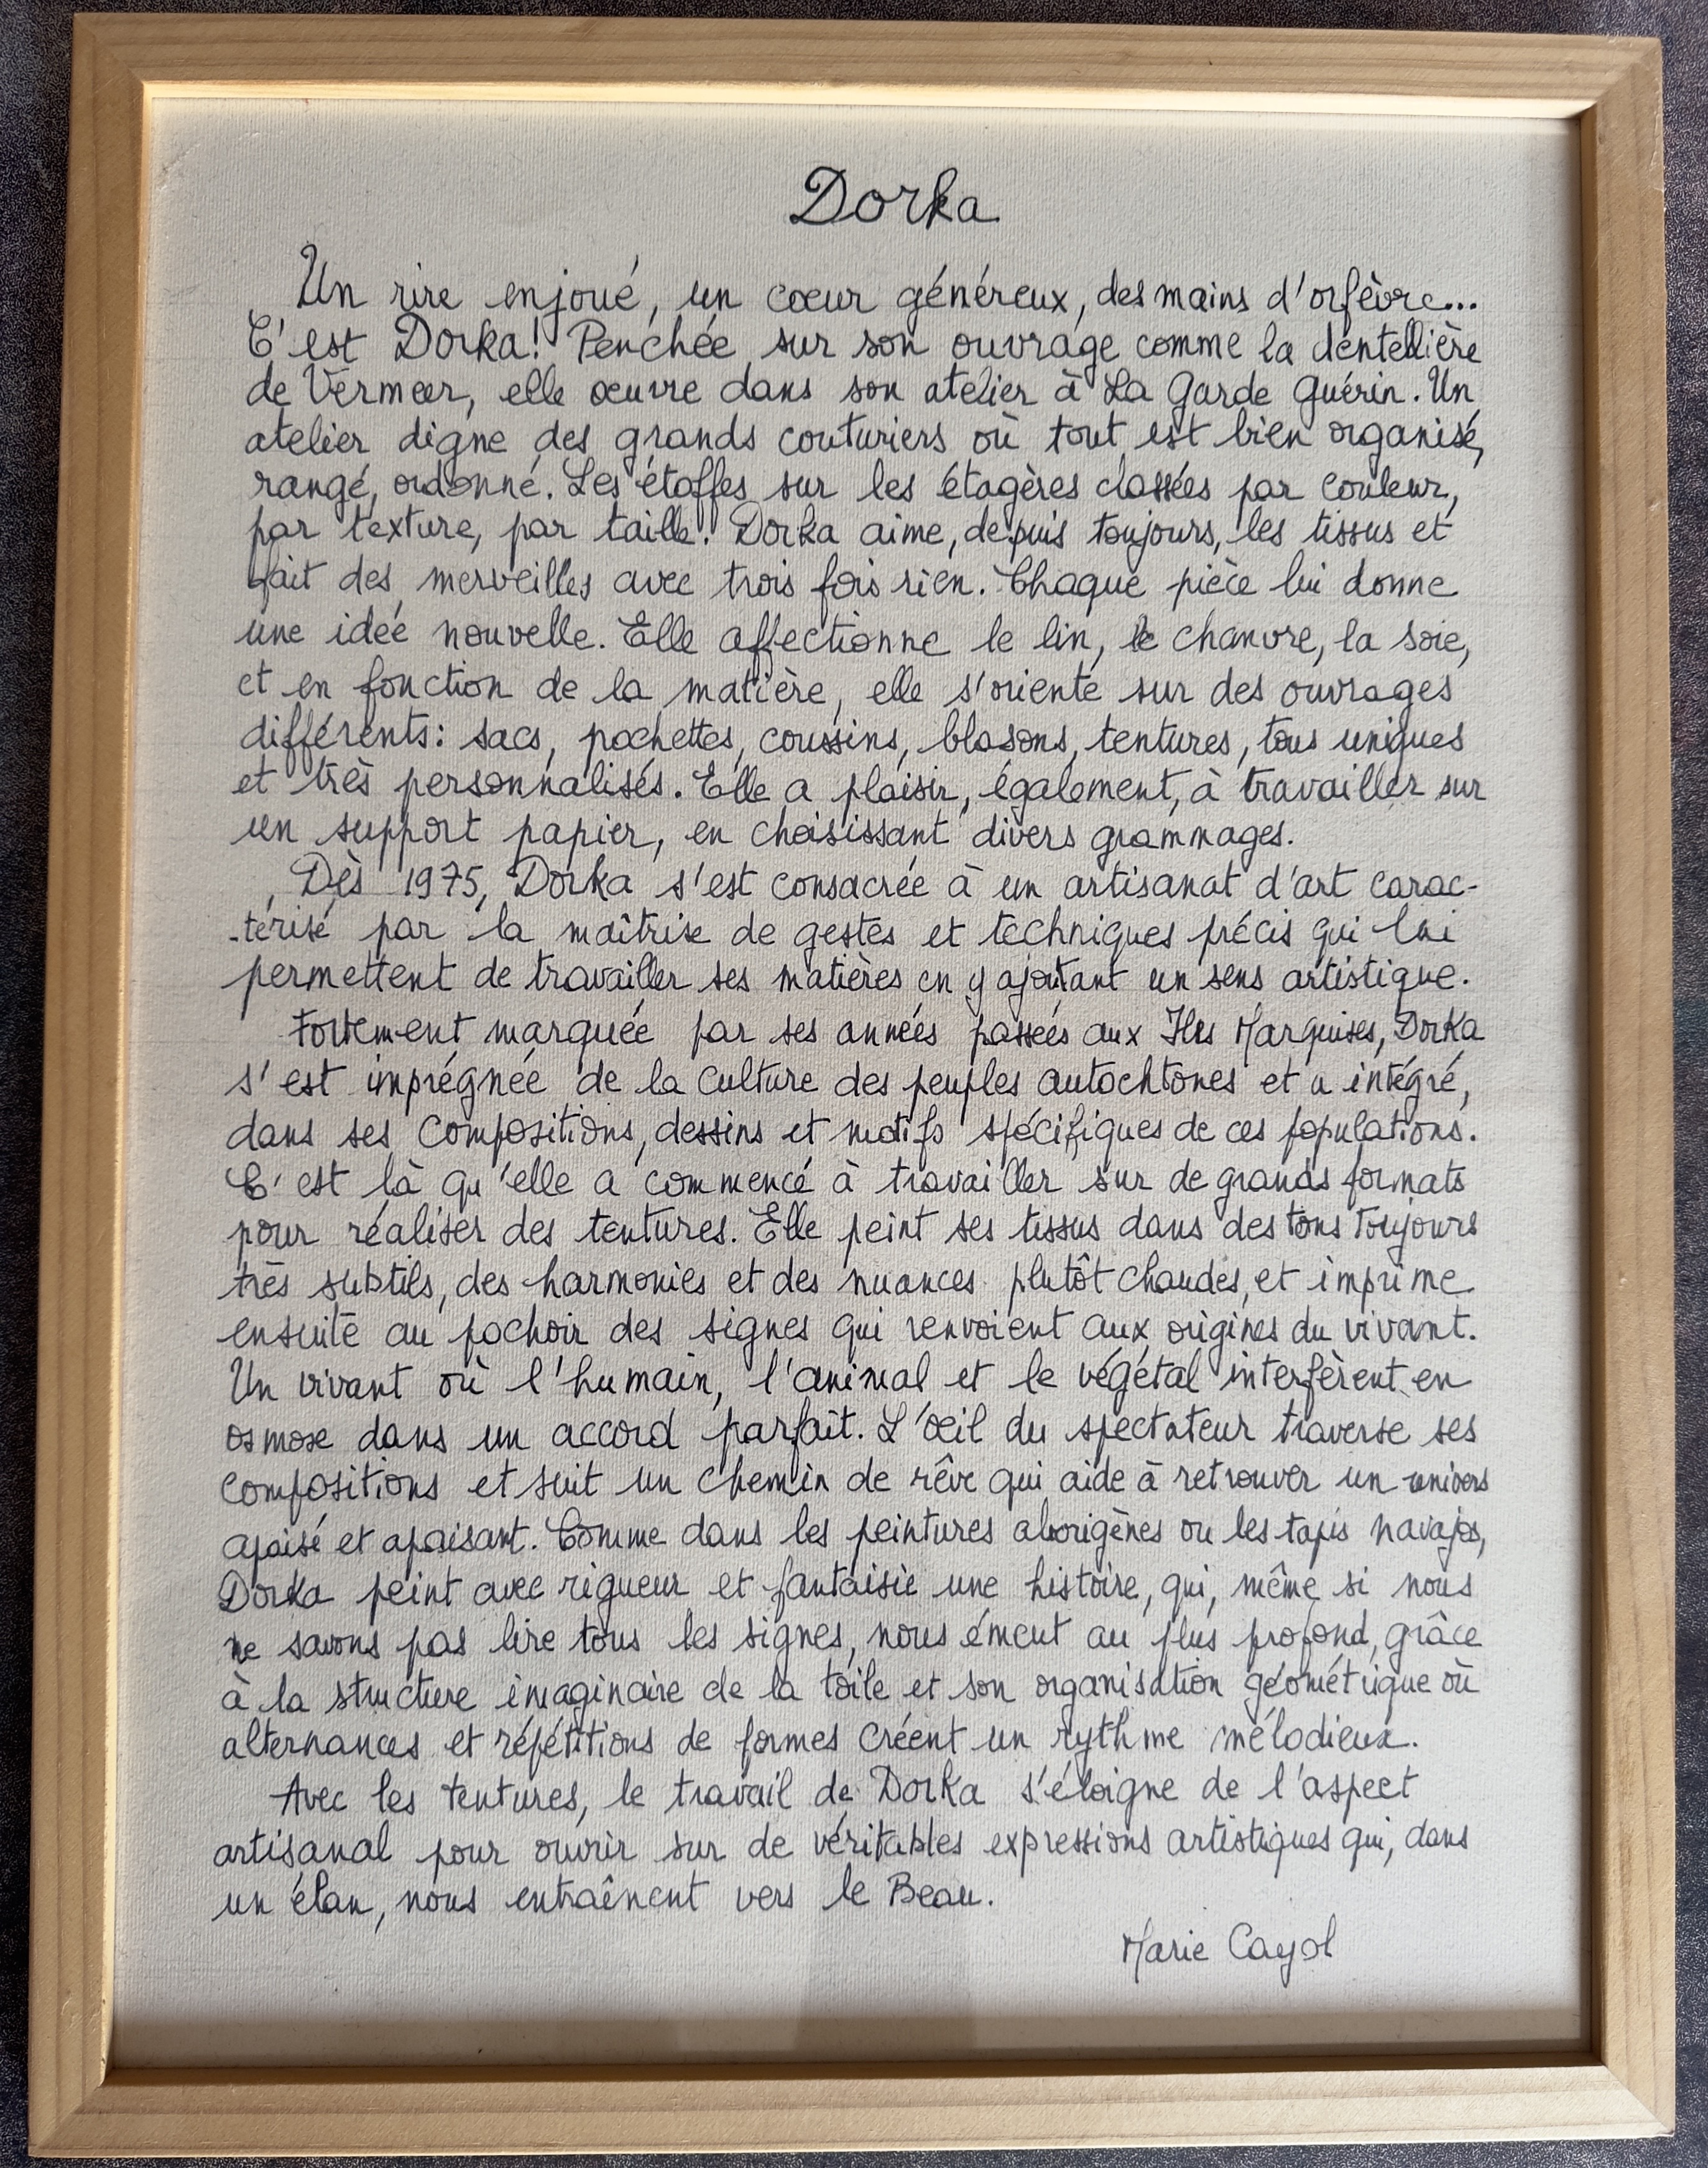 Dorka
Un rire enjoué, un cœur généreux, des mains d'orfèvre...
C'est Dorka! Penchée sur son ouvrage comme la dentellière
de Vermeer, elle œuvre dans son atelier à La Garde Guérin. Un
atelier digne des grands couturiers où tout est bien organisé,
rangé, ordonné. Les étoffes sur les étagères classées par couleur,
par texture, par taille! Dorka aime, depuis toujours, les tissus et
fait des merveilles avec trois fois rien. Chaque pièce lui donne
une idée nouvelle. Elle affectionne le lin, le chanvre, la soie,
et en fonction de la matière, elle s'oriente sur des ouvrages
différents: sacs, pochettes, coussins, blasons, tentures, tous uniques
et très personnalisés. Elle a plaisir, également, à travailler sur
un support papier, en choisissant divers grammages.
Dès 1975, Dorka s'est consacrée à un artisanat d'art carac-
-térisé par la maîtrise de gestes et techniques précis qui lui
permettent de travailler ses matières en y ajoutant un sens artistique.
Fortement marquée par ses années passées aux Iles Marquises, Dorka
s'est imprégnée de la culture des peuples autochtones et a intégré,
dans ses compositions, dessins et motifs spécifiques de ces populations.
C'est là qu'elle a commencé à travailler sur de grands formats
pour réaliser des tentures. Elle peint ses tissus dans des tons toujours
très subtils, des harmonies et des nuances plutôt chaudes, et imprime
ensuite au pochoir des signes qui renvoient aux origines du vivant.
Un vivant où l'humain, l'animal et le végétal interfèrent en
osmose dans un accord parfait. L'œil du spectateur traverse ses
compositions et suit un chemin de rêve qui aide à retrouver un univers
apaisé et apaisant. Comme dans les peintures aborigènes ou les tapis navajos,
Dorka peint avec rigueur et fantaisie une histoire, qui, même si nous
ne savons pas lire tous les signes, nous émeut au plus profond, grâce
à la structure imaginaire de la toile et son organisation géométrique où
alternances et répétitions de formes créent un rythme mélodieux.
Avec les tentures, le travail de Dorka s'éloigne de l'aspect
artisanal pour ouvrir sur de véritables expressions artistiques qui, dans
un élan, nous entraînent vers le Beau.
Marie Cayol